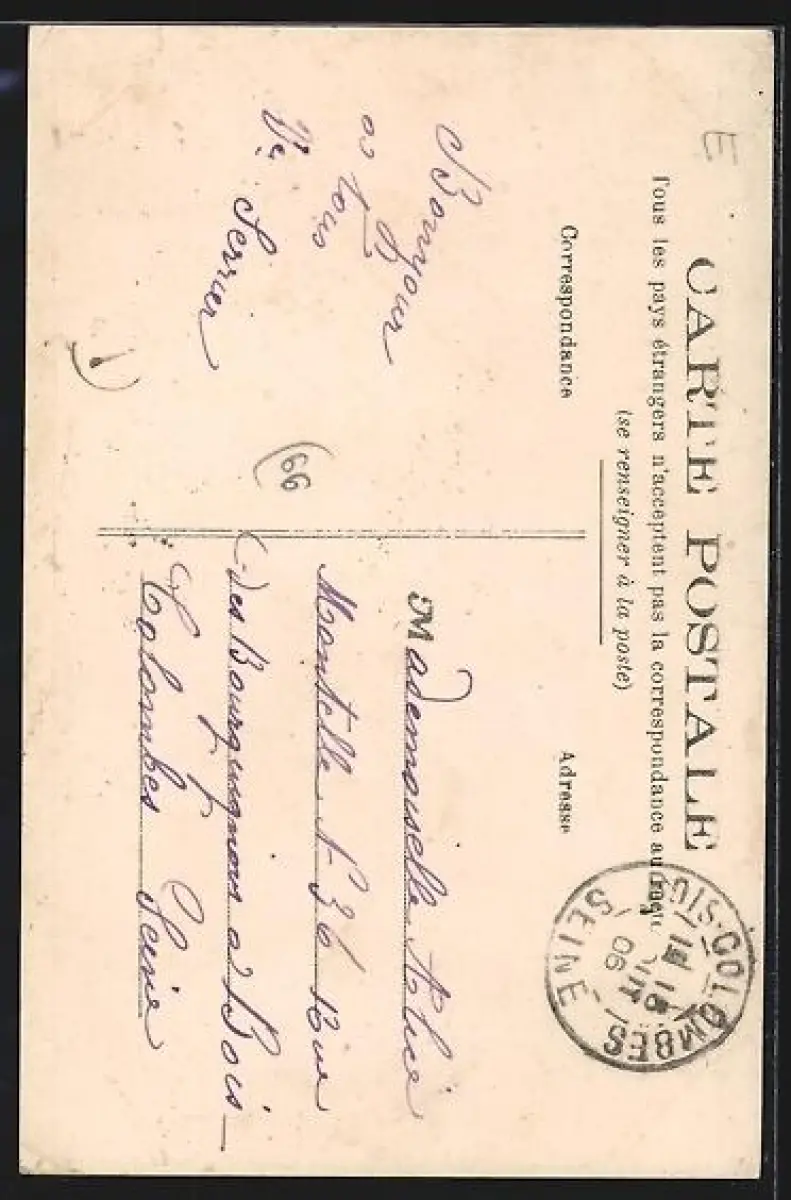 E
CARTE POSTALE
Tous les pays étrangers n'acceptent pas la correspondance au
(se renseigner à la poste)
Correspondance
Adresse
Bonjour
a tous
Ve
(66
1)
Mademoiselle Alice
N 36 Rue
des Bourguignons a Bois-
Colombes Seine
BOIS-COLOMBES
06
SEINE